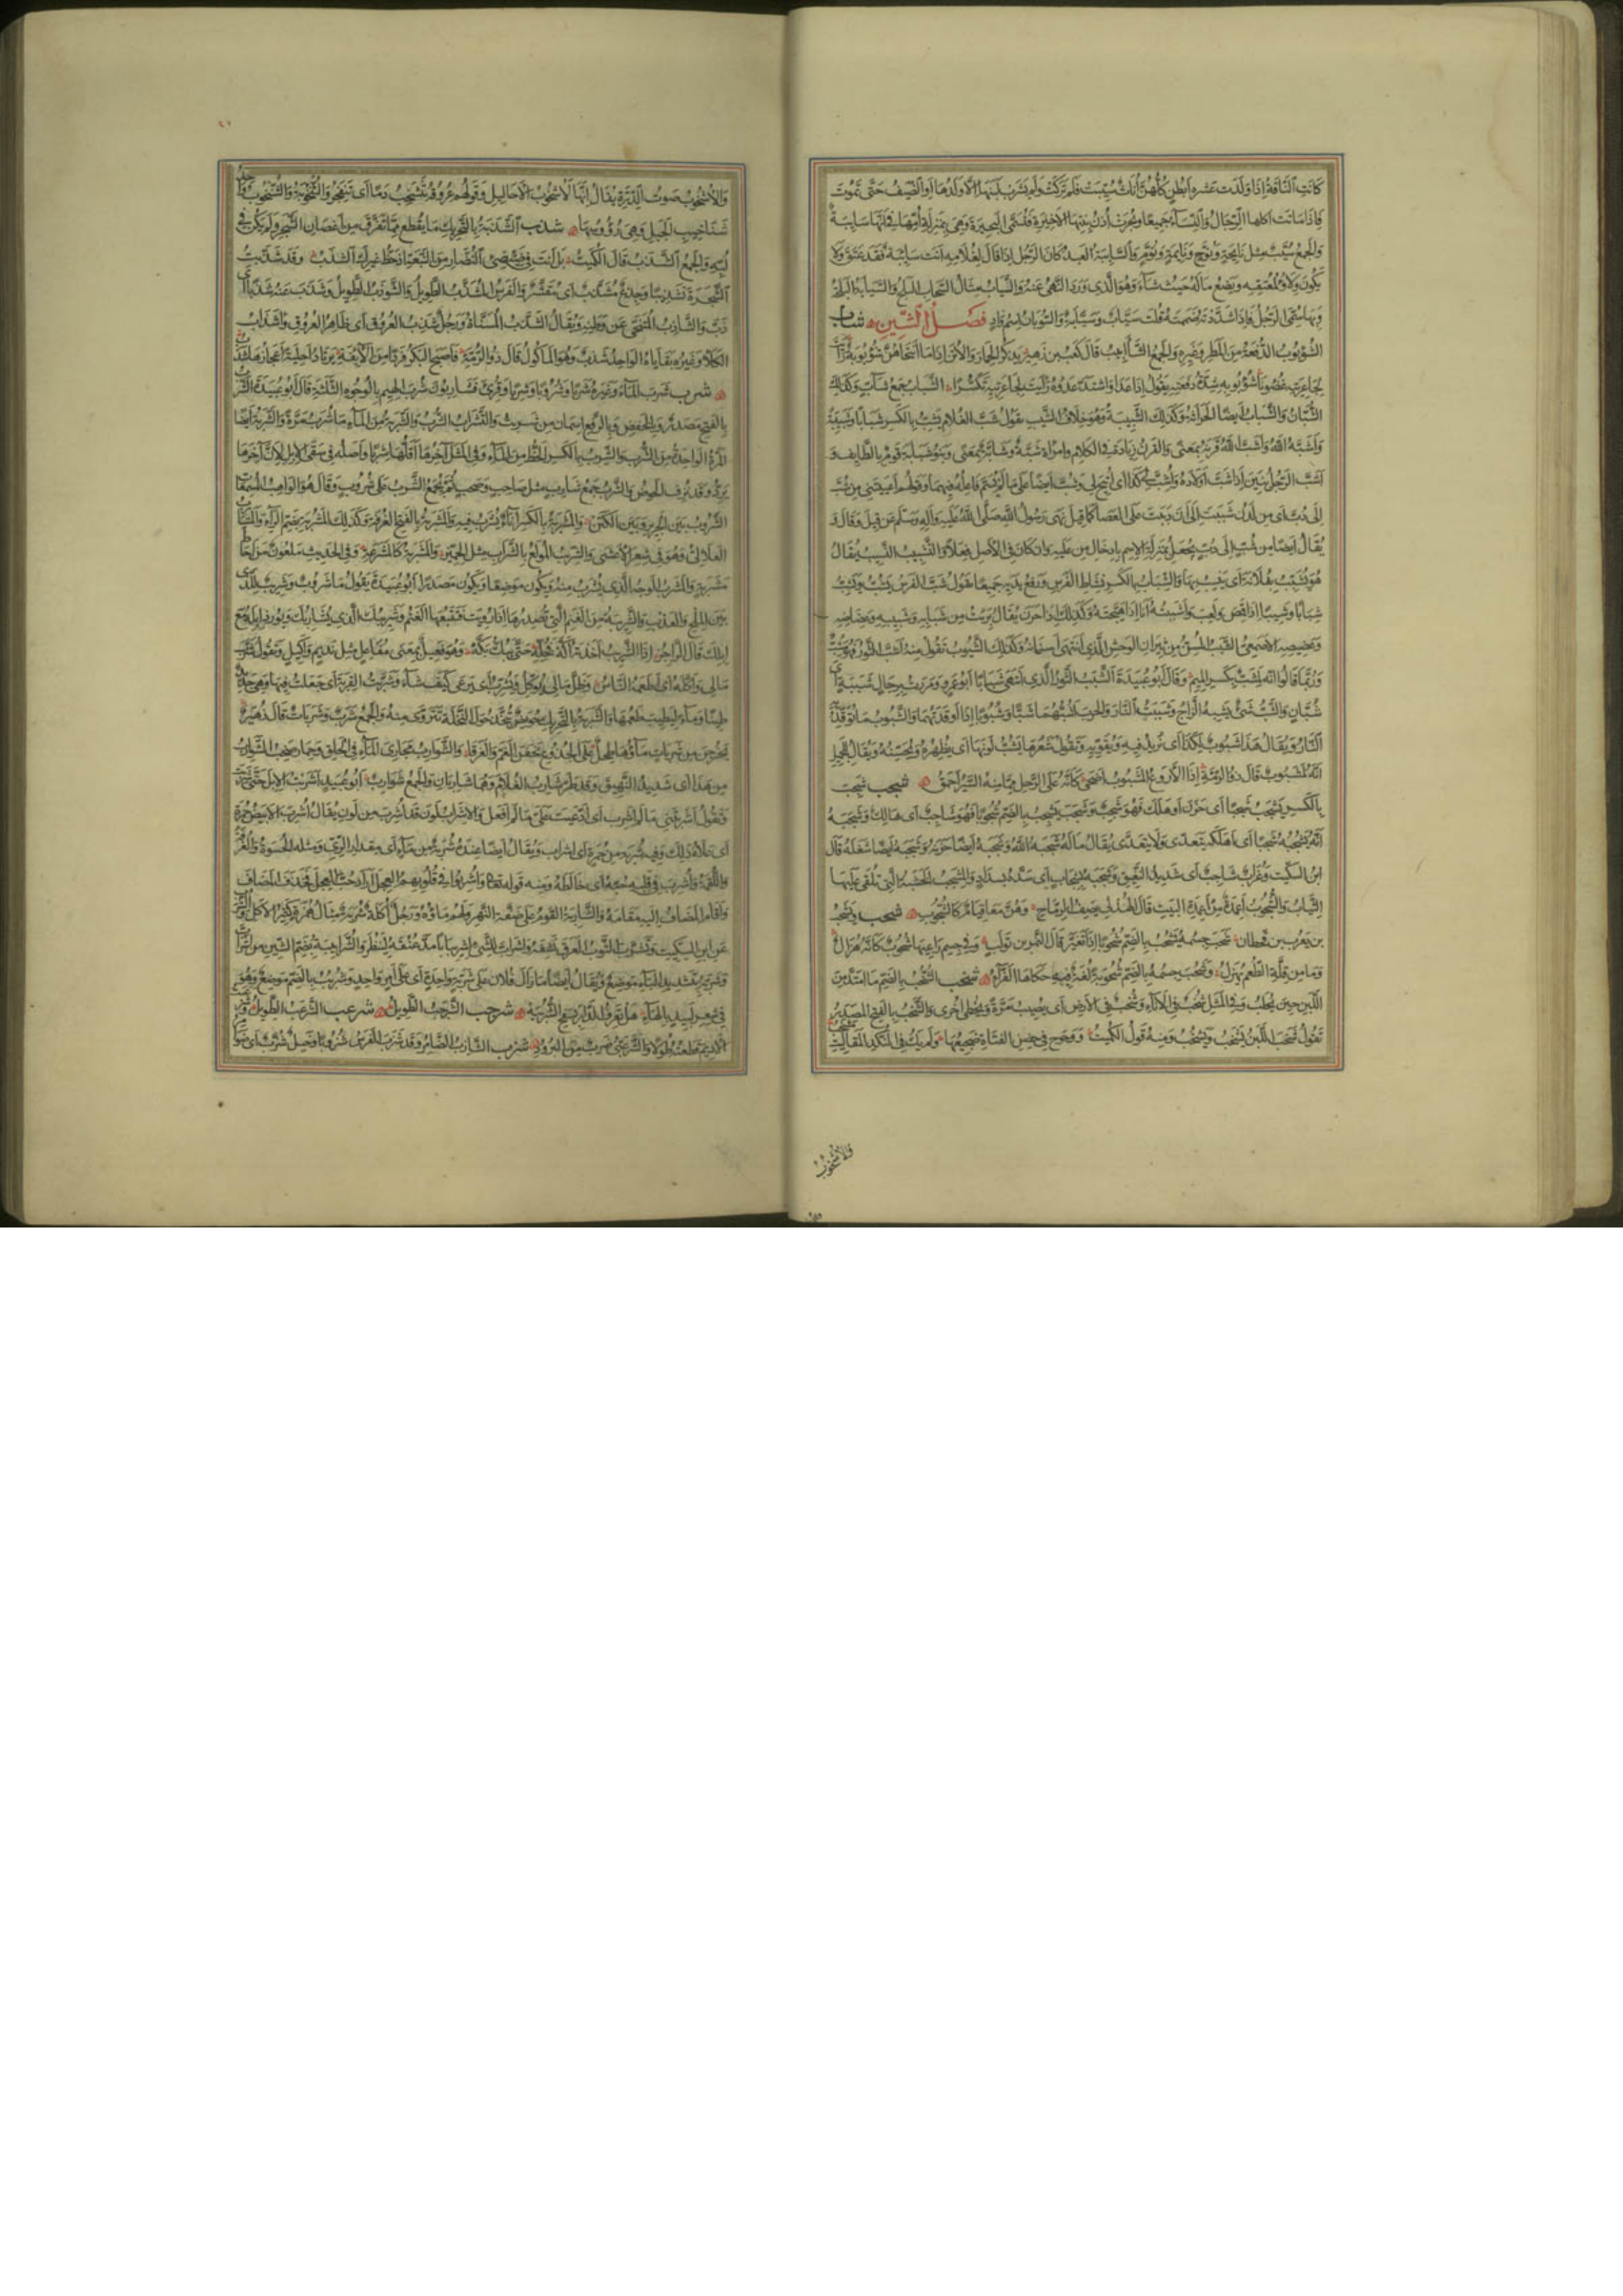 كَانَتِ النَّاقَةُ إِذَا وَلَدَتْ عَشْرَةَ أَبْطُنٍ كُلُّهُنَّ إِنَاثٌ سُيِّبَتْ فَلَمْ تُرْكَبْ وَلَمْ يَشْرَبْ لَبَنَهَا إِلَّا وَلَدُهَا أَوِ الضَّيْفُ حَتَّى تَمُوتَ
فَإِذَا مَاتَتْ أَكَلَهَا الرِّجَالُ وَالنِّسَاءُ جَمِيعًا وَبُحِرَتْ أُذُنُ بِنْتِهَا الأَخِيرَةِ فَتُسَمَّى الْبَحِيرَةَ وَهِيَ بِمَنْزِلَةِ أُمِّهَا فِي أَنَّهَا سَائِبَةٌ
وَالْجَمْعُ سُيَّبٌ مِثْلُ نَائِحَةٍ وَنُوَّحٍ وَنَائِمَةٍ وَنُوَّمٍ وَالسَّائِبَةُ الْعَبْدُ كَانَ الرَّجُلُ إِذَا قَالَ لِغُلَامِهِ أَنْتَ سَائِبَةٌ فَقَدْ عَتَقَ وَلَا
يَكُونُ وَلَاؤُهُ لِمُعْتِقِهِ وَيَضَعُ مَالَهُ حَيْثُ شَاءَ وَهُوَ الَّذِي وَرَدَ النَّهْيُ عَنْهُ وَالسَّيَابُ مِثَالُ السَّحَابِ الْبَلَحُ وَالسَّيَابَةُ الْبَلَحَةُ
وَبِهَا سُمِّيَ الرَّجُلُ فَإِذَا شَدَّدْتَهُ ضَمَمْتَهُ قُلْتَ سُيَّابٌ وَسُيَّابَةٌ وَالسُّوبَانُ اسْمُ وَادٍ فَصْلُ الشِّينِ شأب
الشُّؤْبُوبُ الدُّفْعَةُ مِنَ الْمَطَرِ وَغَيْرِهِ وَالْجَمْعُ الشَّآبِيبُ قَالَ كَعْبُ بْنُ زُهَيْرٍ يَذْكُرُ الْحِمَارَ وَالأُتُنَ إِذَا مَا انْتَحَاهُنَّ شُؤْبُوبُهُ رَأَيْتَ
لِجَاعِرَتَيْهِ غُضُونَا شُؤْبُوبُهُ شِدَّةُ دَفْعَتِهِ يَقُولُ إِذَا عَدَا وَاشْتَدَّ عَدْوُهُ رَأَيْتَ لِجَاعِرَتَيْهِ تَكَسُّرًا شبب الشَّبَابُ جَمْعُ شَابٍّ وَكَذَلِكَ
الشُّبَّانُ وَالشَّبَابُ أَيْضًا الْحَدَاثَةُ وَكَذَلِكَ الشَّبِيبَةُ وَهُوَ خِلَافُ الشَّيْبِ تَقُولُ شَبَّ الْغُلَامُ يَشِبُّ بِالْكَسْرِ شَبَابًا وَشَبِيبَةً
وَأَشَبَّهُ اللهُ وَأَشَبَّ اللهُ قَرْنَهُ بِمَعْنًى وَالْقَرْنُ زِيَادَةٌ فِي الْكَلَامِ وَامْرَأَةٌ شَبَّةٌ وَشَابَّةٌ بِمَعْنًى وَبَنُو شَبَابَةَ قَوْمٌ بِالطَّائِفِ وَ
أَشَبَّ الرَّجُلُ بَنِينَ إِذَا شَبَّ أَوْلَادُهُ وَأُشِبَّ لِي كَذَا أَيْ أُتِيحَ لِي وَشُبَّ أَيْضًا عَلَى مَا لَمْ يُسَمَّ فَاعِلُهُ فِيهِمَا وَقَوْلُهُمْ أَعْيَيْتَنِي مِنْ شُبَّ
إِلَى دُبَّ أَيْ مِنْ لَدُنْ شَبَبْتَ إِلَى أَنْ دَبَبْتَ عَلَى الْعَصَا كَمَا قِيلَ نَهَى رَسُولُ اللهِ صَلَّى اللهُ عَلَيْهِ وَآلِهِ وَسَلَّمَ عَنْ قِيلَ وَقَالَ وَ
يُقَالُ أَيْضًا مِنْ شُبٍّ إِلَى دُبٍّ يُجْعَلُ بِمَنْزِلَةِ الاِسْمِ بِإِدْخَالِ مِنْ عَلَيْهِ وَإِنْ كَانَ فِي الأَصْلِ فِعْلًا وَالتَّشْبِيبُ النَّسِيبُ يُقَالُ
هُوَ يُشَبِّبُ بِفُلَانَةَ أَيْ يَنْسِبُ بِهَا وَالشِّبَابُ بِالْكَسْرِ نَشَاطُ الْفَرَسِ وَرَفْعُ يَدَيْهِ جَمِيعًا تَقُولُ شَبَّ الْفَرَسُ يَشِبُّ وَيَشُبُّ
شِبَابًا وَشَبِيبًا إِذَا قَمَصَ وَلَعِبَ وَأَشْبَبْتُهُ أَنَا إِذَا هَيَّجْتَهُ وَكَذَلِكَ إِذَا حَرَنَ يُقَالُ بَرِئْتُ مِنْ شِبَابِهِ وَشَبِيبِهِ وَعِضَاضِهِ
وَعَضِيضِهِ الأَصْمَعِيُّ الشَّبَبُ الْمُسِنُّ مِنْ ثِيرَانِ الْوَحْشِ الَّذِي انْتَهَى أَسْنَانُهُ وَكَذَلِكَ الشَّبُوبُ تَقُولُ مِنْهُ أَشَبَّ الثَّوْرُ فَهُوَ مُشِبٌّ
وَرُبَّمَا قَالُوا إِنَّهُ لَمِشَبٌّ بِكَسْرِ الْمِيمِ وَقَالَ أَبُو عُبَيْدَةَ الشَّبَبُ الثَّوْرُ الَّذِي انْتَهَى شَبَابًا أَبُو عَمْرٍو وَمَرَرْتُ بِرِجَالٍ شَبَبَةٍ أَيْ
شُبَّانٍ وَالشَّبُّ شَيْءٌ يُشْبِهُ الزَّاجَ وَشَبَبْتُ النَّارَ وَالْحَرْبَ أَشُبُّهُمَا شَبًّا وَشُبُوبًا إِذَا أَوْقَدْتَهُمَا وَالشَّبُوبُ مَا تُوقَدُ بِهِ
النَّارُ وَيُقَالُ هَذَا شَبُوبٌ لِكَذَا أَيْ يَزِيدُ فِيهِ وَيُقَوِّيهِ وَتَقُولُ شَعْرُهَا يَشُبُّ لَوْنَهَا أَيْ يُظْهِرُهُ وَيُحَسِّنُهُ وَيُقَالُ لِلْجَمِيلِ
إِنَّهُ لَمَشْبُوبٌ قَالَ ذُو الرُّمَّةِ إِذَا الأَرْوَعُ الْمَشْبُوبُ أَضْحَى كَأَنَّهُ عَلَى الرَّحْلِ مِمَّا مَنَّهُ السَّيْرُ أَحْمَقُ شجب شَجِبَ
بِالْكَسْرِ يَشْجَبُ شَجَبًا أَيْ حَزِنَ أَوْ هَلَكَ فَهُوَ شَجِبٌ وَشَجَبَ يَشْجُبُ بِالضَّمِّ شُجُوبًا فَهُوَ شَاجِبٌ أَيْ هَالِكٌ وَشَجَبَهُ
اللهُ يَشْجُبُهُ شَجْبًا أَيْ أَهْلَكَهُ يَتَعَدَّى وَلَا يَتَعَدَّى يُقَالُ مَا لَهُ شَجَبَهُ اللهُ وَشَجَبَهُ أَيْضًا حَزَنَهُ وَشَجَبَهُ أَيْضًا شَغَلَهُ قَالَ
ابْنُ السِّكِّيتِ وَغُرَابٌ شَاجِبٌ أَيْ شَدِيدُ النَّعِيقِ وَشَجَبَهُ بِشِجَابٍ أَيْ سَدَّهُ بِسِدَادٍ وَالْمِشْجَبُ الْخَشَبَةُ الَّتِي تُلْقَى عَلَيْهَا
الثِّيَابُ وَالشُّجُوبُ أَعْمِدَةٌ مِنْ أَعْمِدَةِ الْبَيْتِ قَالَ الْهُذَلِيُّ يَصِفُ الرِّمَاحَ وَهُنَّ مَعًا قِيَامٌ كَالشُّجُوبِ شحب وَيَشْجُبُ
بْنُ يَعْرُبَ بْنِ قَحْطَانَ شَحَبَ جِسْمُهُ يَشْحُبُ بِالضَّمِّ شُحُوبًا إِذَا تَغَيَّرَ قَالَ النَّمِرُ بْنُ تَوْلَبٍ وَفِي جِسْمِ رَاعِيهَا شُحُوبٌ كَأَنَّهُ هُزَالٌ
وَمَا مِنْ قِلَّةِ الطُّعْمِ يُهْزَلُ وَشَحُبَ جِسْمُهُ بِالضَّمِّ شُحُوبَةً لُغَةٌ فِيهِ حَكَاهَا الْفَرَّاءُ شخب الشُّخْبُ بِالضَّمِّ مَا امْتَدَّ مِنَ
اللَّبَنِ حِينَ يُحْلَبُ وَفِي الْمَثَلِ شُخْبٌ فِي الإِنَاءِ وَشُخْبٌ فِي الأَرْضِ أَيْ يُصِيبُ مَرَّةً وَيُخْطِئُ أُخْرَى وَالشَّخْبُ بِالْفَتْحِ الْمَصْدَرُ
تَقُولُ شَخَبَ اللَّبَنُ يَشْخَبُ وَيَشْخُبُ وَمِنْهُ قَوْلُ الْكُمَيْتِ وَوَحْوَحَ فِي حِضْنِ الْفَتَاةِ ضَجِيعُهَا وَلَمْ يَكُ فِي النُّكْدِ الْمَقَالِيتِ مَشْخَبُ
وَالأُشْخُوبُ
وَالأُشْخُوبُ صَوْتُ الدِّرَّةِ يُقَالُ إِنَّهَا لَأُشْخُوبُ الأَحَالِيلِ وَقَوْلُهُمْ عُرُوقُهُ تَشْخَبُ دَمًا أَيْ تَنْفَجِرُ وَالشُّنْخُوبَةُ وَالشُّنْخُوبُ وَاحِدُ
شَنَاخِيبِ الْجَبَلِ وَهِيَ رُؤُوسُهَا شذب الشَّذَبَةُ بِالتَّحْرِيكِ مَا يُقْطَعُ مِمَّا تَفَرَّقَ مِنْ أَغْصَانِ الشَّجَرِ وَلَمْ يَكُنْ فِي
لُبِّهِ وَالْجَمْعُ الشَّذَبُ قَالَ الْكُمَيْتُ بَلْ أَنْتَ فِي ضِئْضِئِ النُّضَارِ مِنَ النَّبْعَةِ إِذْ حَظُّ غَيْرِكَ الشَّذَبُ وَقَدْ شَذَّبْتُ
الشَّجَرَةَ تَشْذِيبًا وَجِذْعٌ مُشَذَّبٌ أَيْ مُقَشَّرٌ وَالْفَرَسُ الْمُشَذَّبُ الطَّوِيلُ وَالشَّوْذَبُ الطَّوِيلُ وَشَذَبَ عَنْهُ شَذْبًا أَيْ
ذَبَّ وَالشَّاذِبُ الْمُتَنَحِّي عَنْ وَطَنِهِ وَيُقَالُ الشَّذَبُ الْمُسَنَّاةُ وَرَجُلٌ شَذِبُ الْعُرُوقِ أَيْ ظَاهِرُ الْعُرُوقِ وَأَشْذَابُ
الْكَلَإِ وَغَيْرِهِ بَقَايَاهُ الْوَاحِدُ شَذَبٌ وَهُوَ الْمَأْكُولُ قَالَ ذُو الرُّمَّةِ فَأَصْبَحَ الْبَكْرُ فَرْدًا مِنْ أَلَائِفِهِ يَرْتَادُ أَحْلِيَةً أَعْجَازُهَا شَذَبُ
شرب شَرِبَ الْمَاءَ وَغَيْرَهُ شُرْبًا وَشَرْبًا وَشِرْبًا وَقُرِئَ فَشَارِبُونَ شُرْبَ الْهِيمِ بِالْوُجُوهِ الثَّلَثَةِ قَالَ أَبُو عُبَيْدَةَ الشَّرْبُ
بِالْفَتْحِ مَصْدَرٌ وَبِالْخَفْضِ وَبِالرَّفْعِ اسْمَانِ مِنْ شَرِبْتُ وَالتَّشْرَابُ الشُّرْبُ وَالشَّرْبَةُ مِنَ الْمَاءِ مَا يُشْرَبُ مَرَّةً وَالشَّرْبَةُ أَيْضًا
الْمَرَّةُ الْوَاحِدَةُ مِنَ الشُّرْبِ وَالشِّرْبُ بِالْكَسْرِ الْحَظُّ مِنَ الْمَاءِ وَفِي الْمَثَلِ آخِرُهَا أَقَلُّهَا شِرْبًا وَأَصْلُهُ فِي سَقْيِ الإِبِلِ لِأَنَّ آخِرَهَا
يَرِدُ وَقَدْ نُزِفَ الْحَوْضُ وَالشَّرْبُ جَمْعُ شَارِبٍ مِثْلُ صَاحِبٍ وَصَحْبٍ ثُمَّ يُجْمَعُ الشَّرْبُ عَلَى شُرُوبٍ وَقَالَ هُوَ الْوَاهِبُ الْمُسْمِعَاتِ
الشُّرُوبَ بَيْنَ الْحَرِيرِ وَبَيْنَ الْكَتَنْ وَالْمِشْرَبَةُ بِالْكَسْرِ إِنَاءٌ يُشْرَبُ فِيهِ وَالْمَشْرَبَةُ بِالْفَتْحِ الْغُرْفَةُ وَكَذَلِكَ الْمَشْرُبَةُ بِضَمِّ الرَّاءِ وَالْمَشَارِبُ
الْعَلَالِيُّ وَهُوَ فِي شِعْرِ الأَعْشَى وَالشِّرِّيبُ الْمُولَعُ بِالشَّرَابِ مِثْلُ الْخِمِّيرِ وَالْمَشْرَبَةُ كَالْمَشْرَعَةِ وَفِي الْحَدِيثِ مَلْعُونٌ مَنْ أَحَاطَ عَلَى
مَشْرَبَةٍ وَالْمَشْرَبُ الْوَجْهُ الَّذِي يُشْرَبُ مِنْهُ وَيَكُونُ مَوْضِعًا وَيَكُونُ مَصْدَرًا أَبُو عُبَيْدَةَ يَقُولُ مَاءٌ شَرُوبٌ وَشَرِيبٌ لِلَّذِي
بَيْنَ الْمِلْحِ وَالْعَذْبِ وَالشَّرِيبَةُ مِنَ الْغَنَمِ الَّتِي تُصْدِرُهَا إِذَا رَوِيَتْ فَتَتْبَعُهَا الْغَنَمُ وَشَرِيبُكَ الَّذِي يُشَارِبُكَ وَيُورِدُ إِبِلَهُ مَعَ
إِبِلِكَ قَالَ الرَّاجِزُ إِذَا الشَّرِيبُ أَخَذَتْهُ أَكَّهْ فَخَلِّهِ حَتَّى يَبُكَّ بَكَّهْ وَهُوَ فَعِيلٌ بِمَعْنَى مُفَاعِلٍ مِثْلُ نَدِيمٍ وَأَكِيلٍ وَتَقُولُ شَرَّبَ
مَالِي وَأَكَّلَهُ أَيْ أَطْعَمَهُ النَّاسَ وَظَلَّ مَالِي يُؤَكِّلُ وَيُشَرِّبُ أَيْ يَرْعَى كَيْفَ شَاءَ وَشَرَّبْتُ الْقِرْبَةَ أَيْ جَعَلْتُ فِيهَا وَهِيَ جَدِيدَةٌ
طِينًا وَمَاءً لِيَطِيبَ طَعْمُهَا وَالشَّرَبَةُ بِالتَّحْرِيكِ حَوْضٌ يُتَّخَذُ حَوْلَ النَّخْلَةِ تَتَرَوَّى مِنْهُ وَالْجَمْعُ شَرَبٌ وَشَرَبَاتٌ قَالَ زُهَيْرٌ
يَخْرُجْنَ مِنْ شَرَبَاتٍ مَاؤُهَا طَحِلٌ عَلَى الْجُذُوعِ يَخَفْنَ الْغَمَّ وَالْغَرَقَا وَالشَّوَارِبُ مَجَارِي الْمَاءِ فِي الْحَلْقِ وَحِمَارٌ صَخِبُ الشَّوَارِبِ
مِنْ هَذَا أَيْ شَدِيدُ النَّهِيقِ وَقَدْ طَرَّ شَارِبُ الْغُلَامِ وَهُمَا شَارِبَانِ وَالْجَمْعُ شَوَارِبُ أَبُو عُبَيْدٍ أَشْرَبْتُ الإِبِلَ حَتَّى شَرِبَتْ
وَتَقُولُ أَشْرَبْتَنِي مَا لَمْ أَشْرَبْ أَيِ ادَّعَيْتَ عَلَيَّ مَا لَمْ أَفْعَلْ وَالإِشْرَابُ لَوْنٌ قَدْ أُشْرِبَ مِنْ لَوْنٍ يُقَالُ أُشْرِبَ الأَبْيَضُ حُمْرَةً
أَيْ عَلَاهُ ذَلِكَ وَفِيهِ شُرْبَةٌ مِنْ حُمْرَةٍ أَيْ إِشْرَابٌ وَيُقَالُ أَيْضًا عِنْدَهُ شُرْبَةٌ مِنْ مَاءٍ أَيْ مِقْدَارُ الرِّيِّ وَمِثْلُهُ الْحُسْوَةُ وَالْغُرْفَةُ
وَاللُّقْمَةُ وَأُشْرِبَ فِي قَلْبِهِ حُبَّهُ أَيْ خَالَطَهُ وَمِنْهُ قَوْلُهُ تَعَالَى وَأُشْرِبُوا فِي قُلُوبِهِمُ الْعِجْلَ أَرَادَ حُبَّ الْعِجْلِ فَحَذَفَ الْمُضَافَ
وَأَقَامَ الْمُضَافَ إِلَيْهِ مَقَامَهُ وَالشَّارِبَةُ الْقَوْمُ عَلَى ضَفَّةِ النَّهْرِ وَلَهُمْ مَاؤُهُ وَرَجُلٌ أُكَلَةٌ شُرَبَةٌ مِثَالُ هُمَزَةٍ كَثِيرُ الأَكْلِ وَالشُّرْبِ
عَنِ ابْنِ السِّكِّيتِ وَتَشَرَّبَ الثَّوْبُ الْعَرَقَ نَشِفَهُ وَاشْرَأَبَّ لِلشَّيْءِ اشْرِيبَابًا مَدَّ عُنُقَهُ لِيَنْظُرَ وَالشُّرَأْبِيبَةُ بِضَمِّ الشِّينِ مِنِ اشْرَأَبَّ
وَشَرَبَّةُ بِتَشْدِيدِ الْبَاءِ مَوْضِعٌ وَيُقَالُ أَيْضًا مَا زَالَ فُلَانٌ عَلَى شَرَبَّةٍ وَاحِدَةٍ أَيْ عَلَى أَمْرٍ وَاحِدٍ وَشُرْبُبٌ بِالضَّمِّ مَوْضِعٌ وَهُوَ
فِي شِعْرِ لَبِيدٍ بِالْهَاءِ هَلْ تَعْرِفُ الدَّارَ بِسَفْحِ الشُّرْبُبَهْ شرجب الشَّرْجَبُ الطَّوِيلُ شرعب الشَّرْعَبُ الطَّوِيلُ
الأَدِيمَ قَطَعْتُهُ طُولًا وَالشَّرْعَبِيُّ ضَرْبٌ مِنَ الْبُرُودِ شزب الشَّازِبُ الضَّامِرُ وَقَدْ شَزَبَ الْفَرَسُ شُزُوبًا وَخَيْلٌ شُزَّبٌ أَيْ ضَوَامِرُ